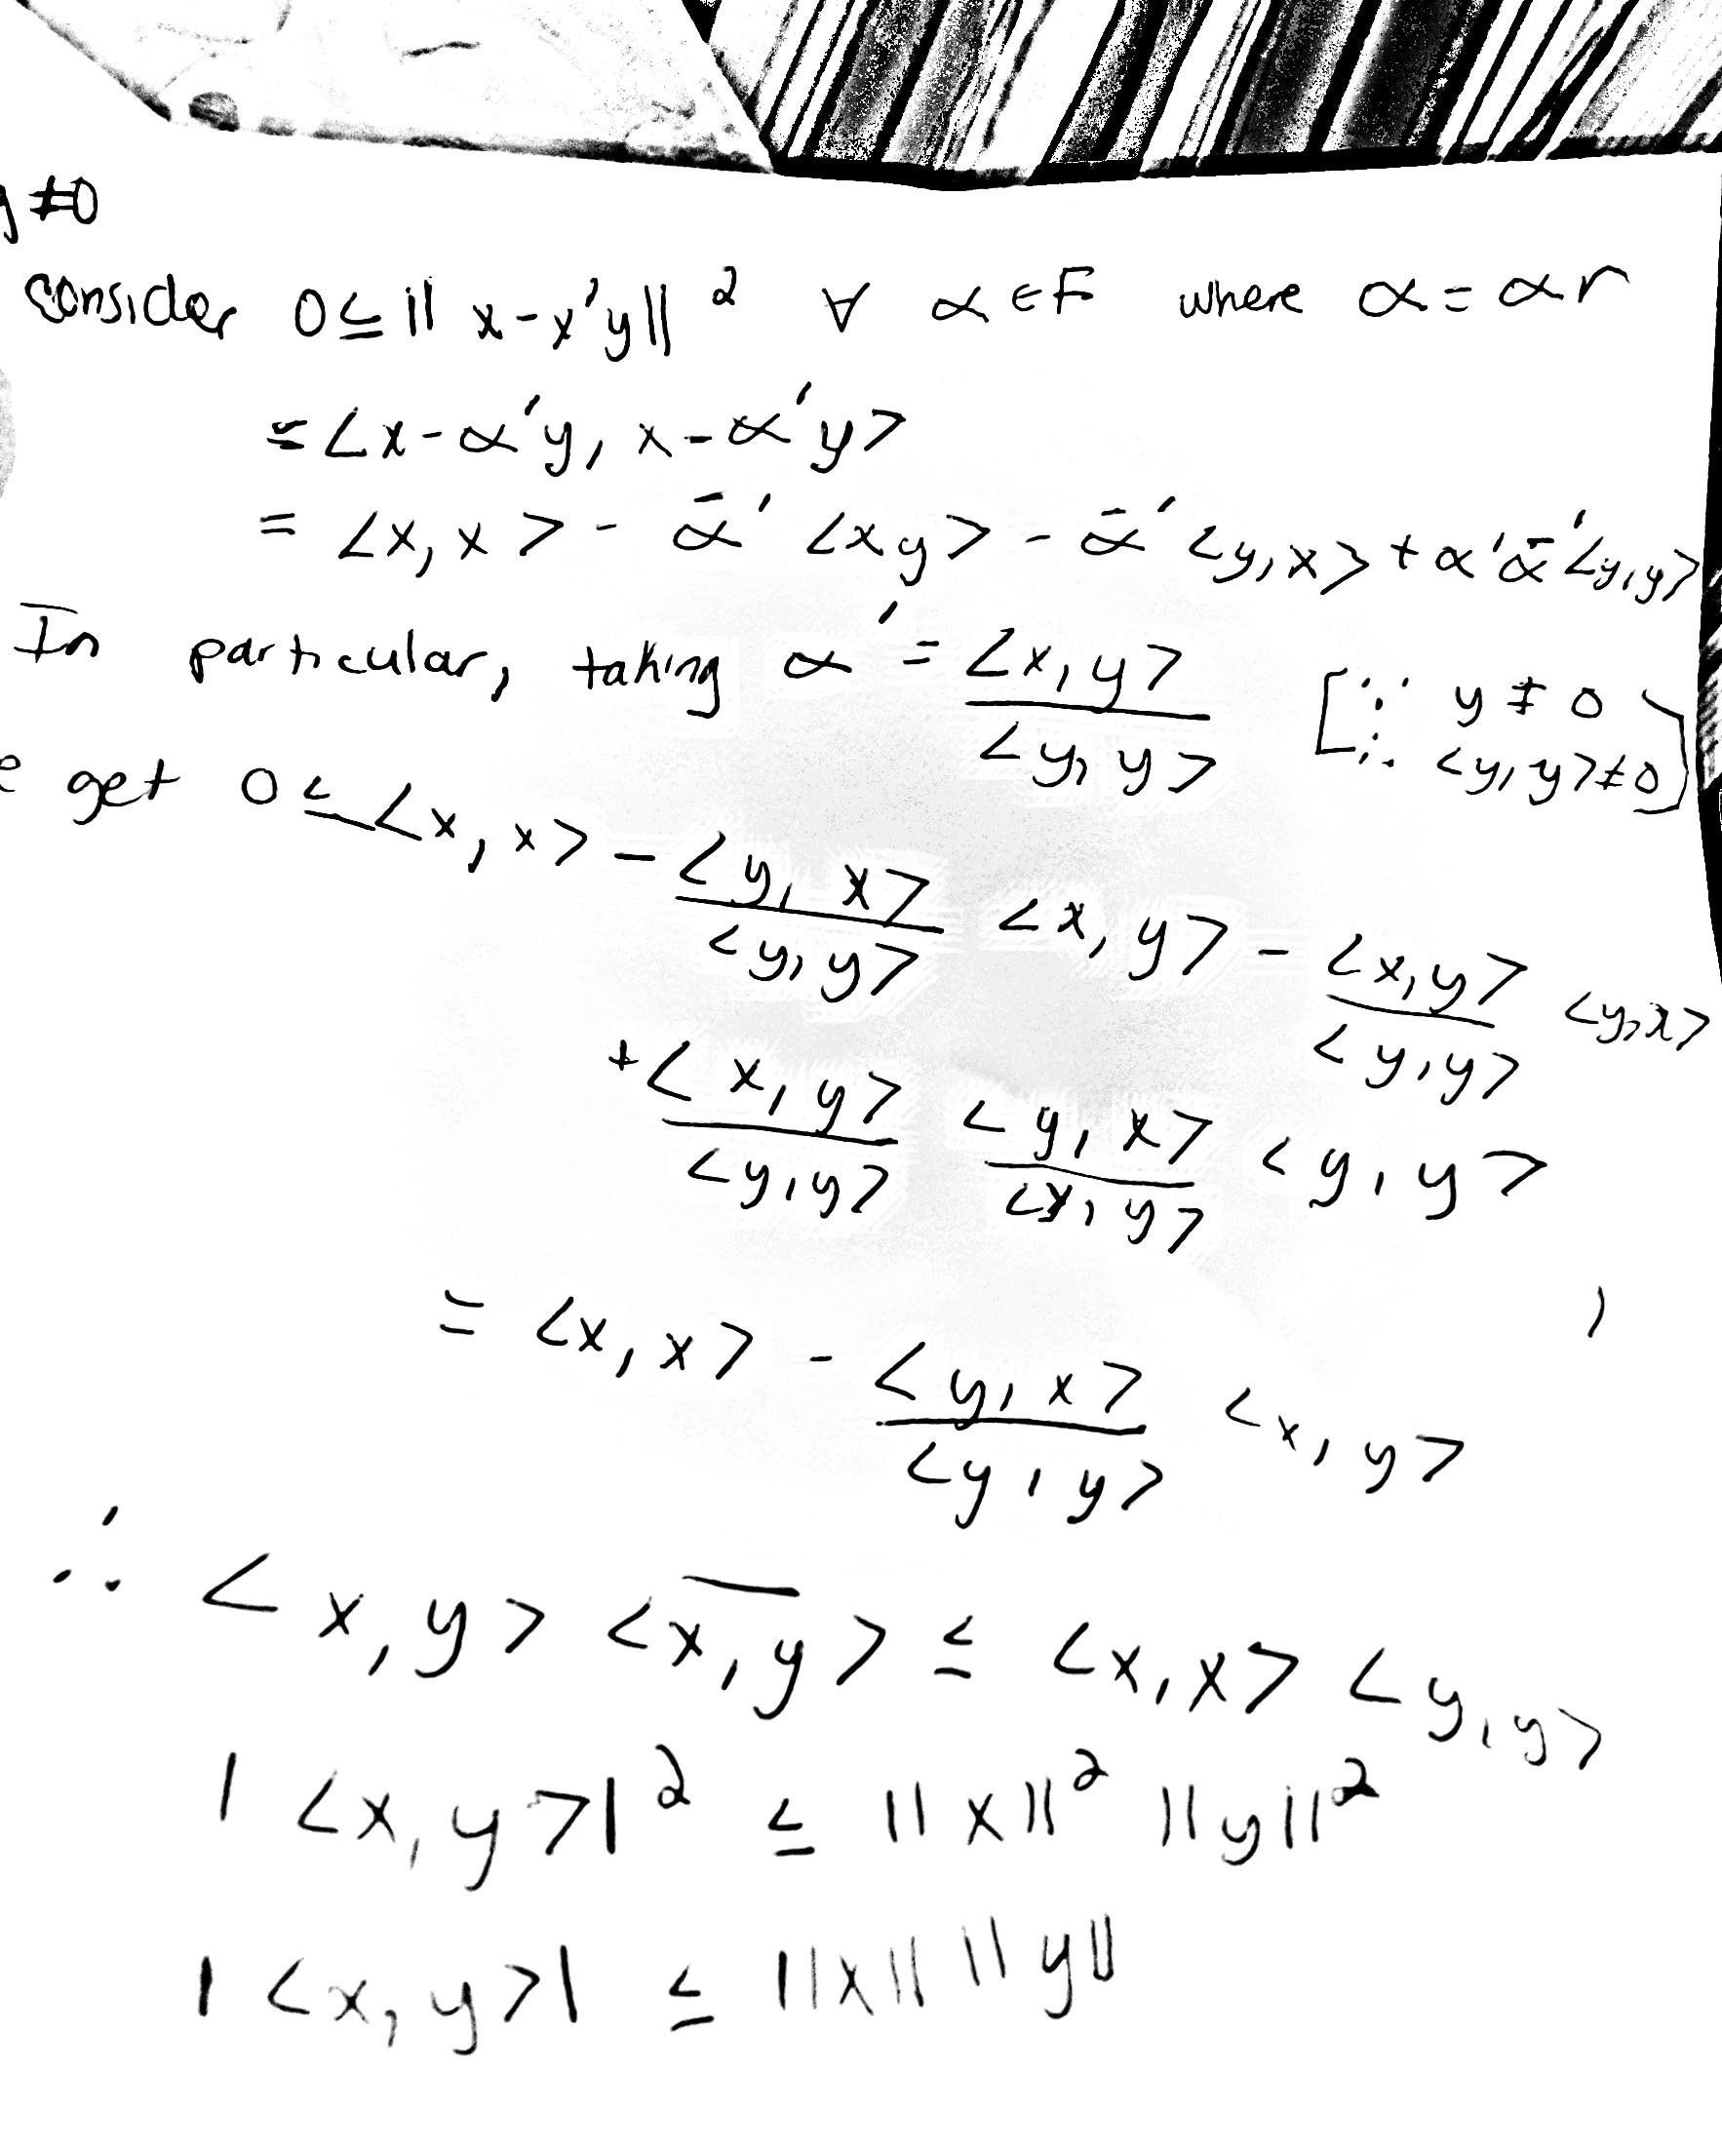 y ≠ 0
consider 0 ≤ || x - x'y || ² ∀ α ∈ F where α = αr
= <x - α'y, x - α'y>
= <x, x> - ᾱ' <x y> - ᾱ' <y, x> + α'ᾱ' <y, y>
In particular, taking α' = <x, y> / <y, y> [∵ y ≠ 0 ∴ <y, y> ≠ 0]
e get 0 ≤ <x, x> - <y, x> / <y, y> <x, y> - <x, y> / <y, y> <y, x>
+ <x, y> / <y, y> <y, x> / <y, y> <y, y>
= <x, x> - <y, x> / <y, y> <x, y>
∴ <x, y> <x̅,̅ y> ≤ <x, x> <y, y>
| <x, y> |² ≤ ||x||² ||y||²
| <x, y> | ≤ ||x|| ||y||